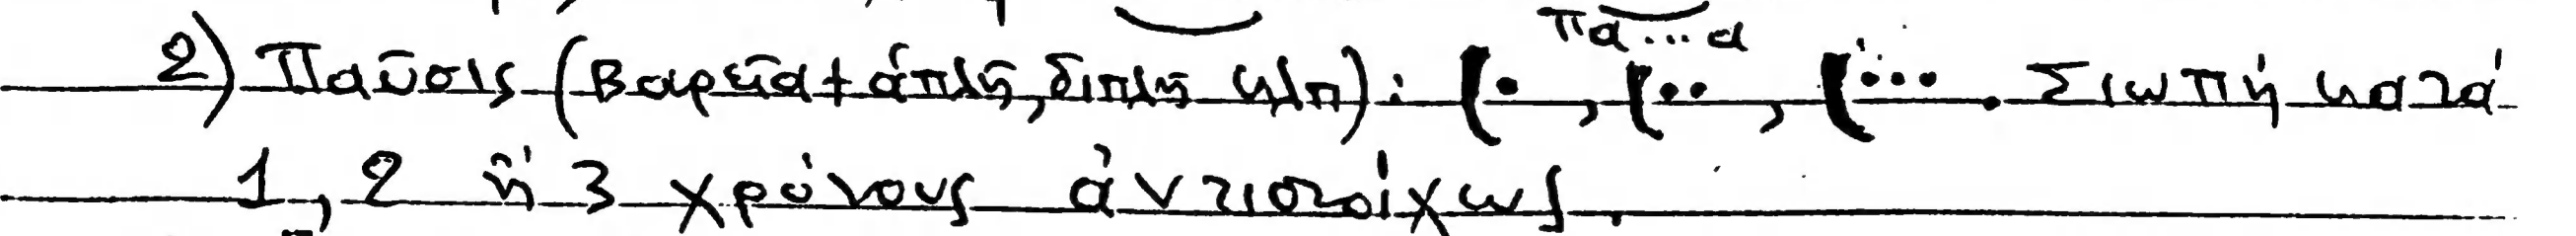 πα...α
2) Παῦσις (Βαρεῖα + ἁπλῆ, διπλῆ κλπ): (• , (•• , (••• . Σιωπή κατά
1, 2 ἤ 3 χρόνους ἀντιστοίχως.